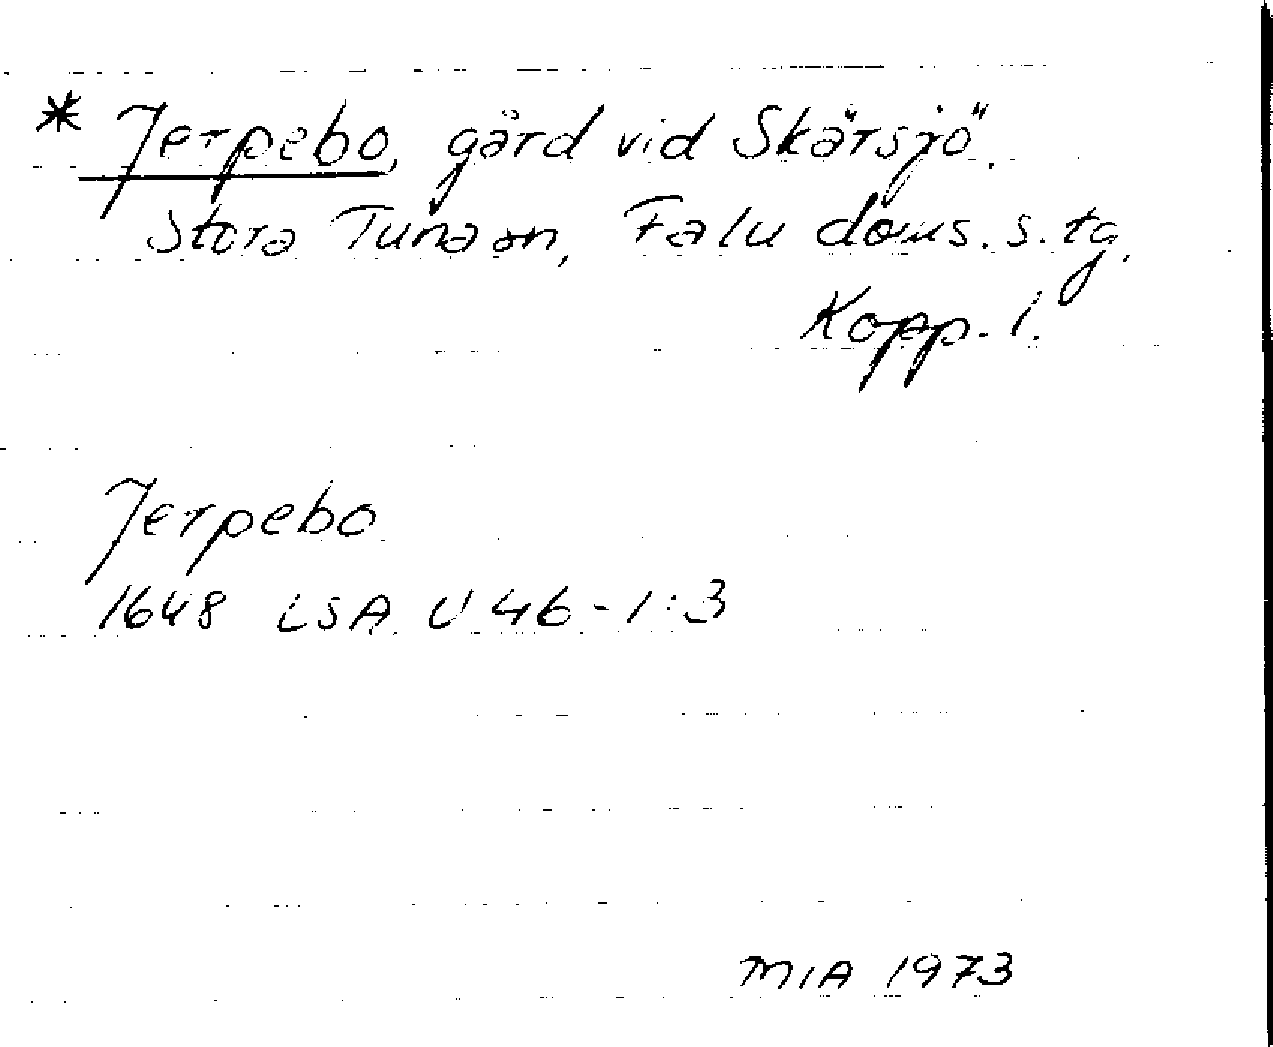 * Jerpebo, gård vid Skärsjö.
Stora Tuna sn, Falu doms. s. tg,
Kopp. l.
Jerpebo
1648 LSA U 46-1:3
MIA 1973